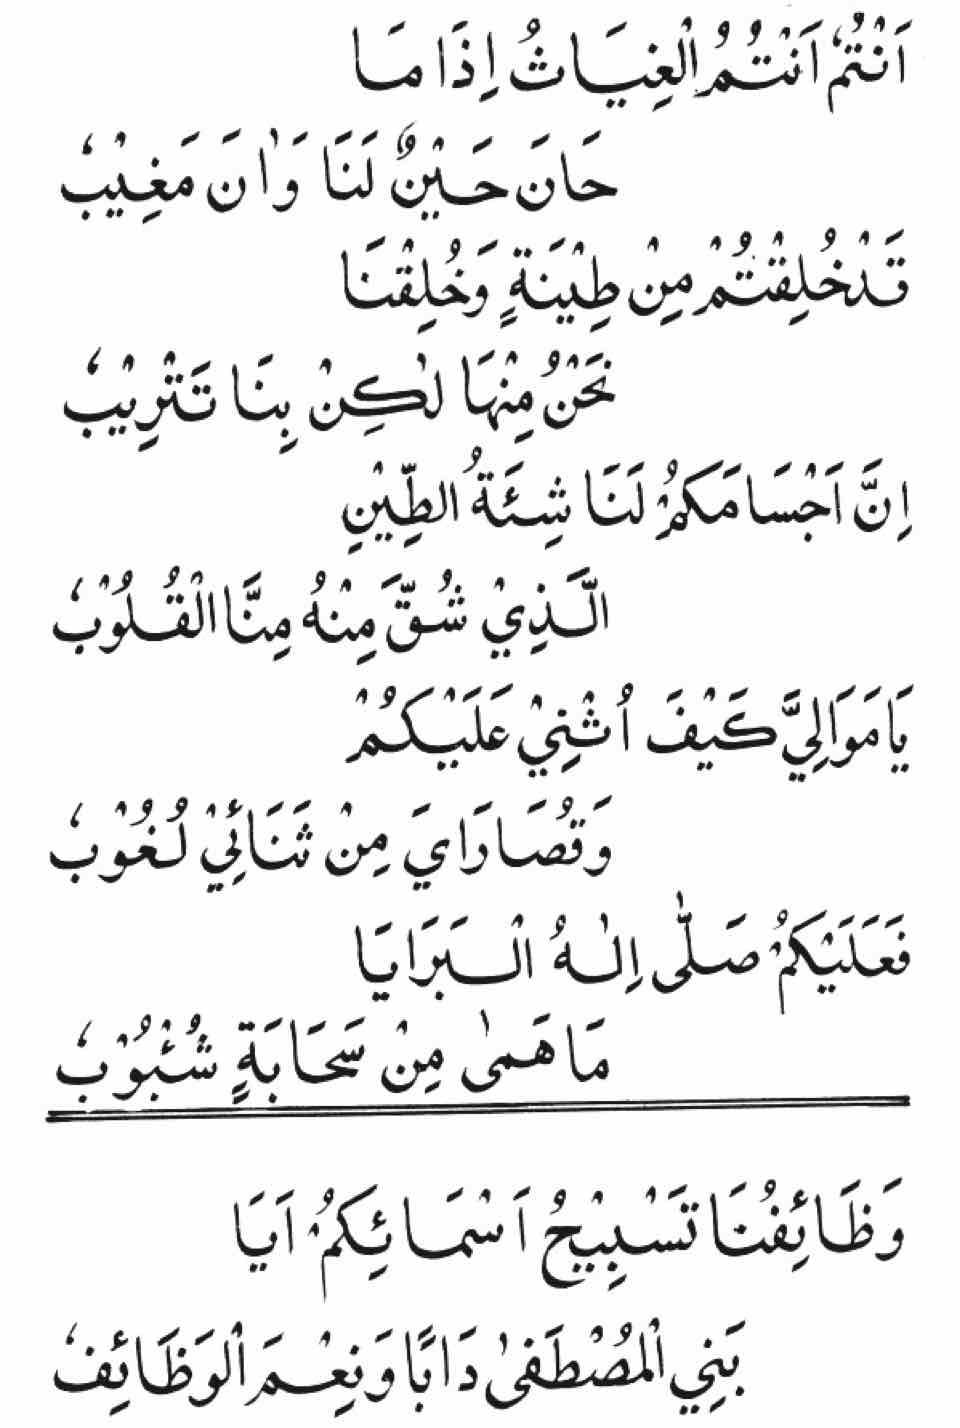 اَنْتُمْ اَنْتُمُ الْغِيَاثُ اِذَا مَا
حَانَ حَيْنٌ لَنَا وَاٰنَ مَغِيْبُ
قَدْ خُلِقْتُمْ مِنْ طِيْنَةٍ وَخُلِقْنَا
نَحْنُ مِنْهَا لٰكِنْ بِنَا تَتْرِيْبُ
اِنَّ اَجْسَامَكُمْ لَنَا شِئَةُ الطِّيْنِ
الَّذِيْ شُقَّ مِنْهُ مِنَّا الْقُلُوْبُ
يَا مَوَالِيَّ كَيْفَ اُثْنِيْ عَلَيْكُمْ
وَقُصَارَايَ مِنْ ثَنَائِيْ لُغُوْبُ
فَعَلَيْكُمْ صَلّٰى اِلٰهُ الْبَرَايَا
مَا هَمٰى مِنْ سَحَابَةٍ شُئْبُوْبُ
وَظَائِفُنَا تَسْبِيْحُ اَسْمَائِكُمْ اَيَا
بَنِي الْمُصْطَفٰى دَابًا وَنِعْمَ الْوَظَائِفُ